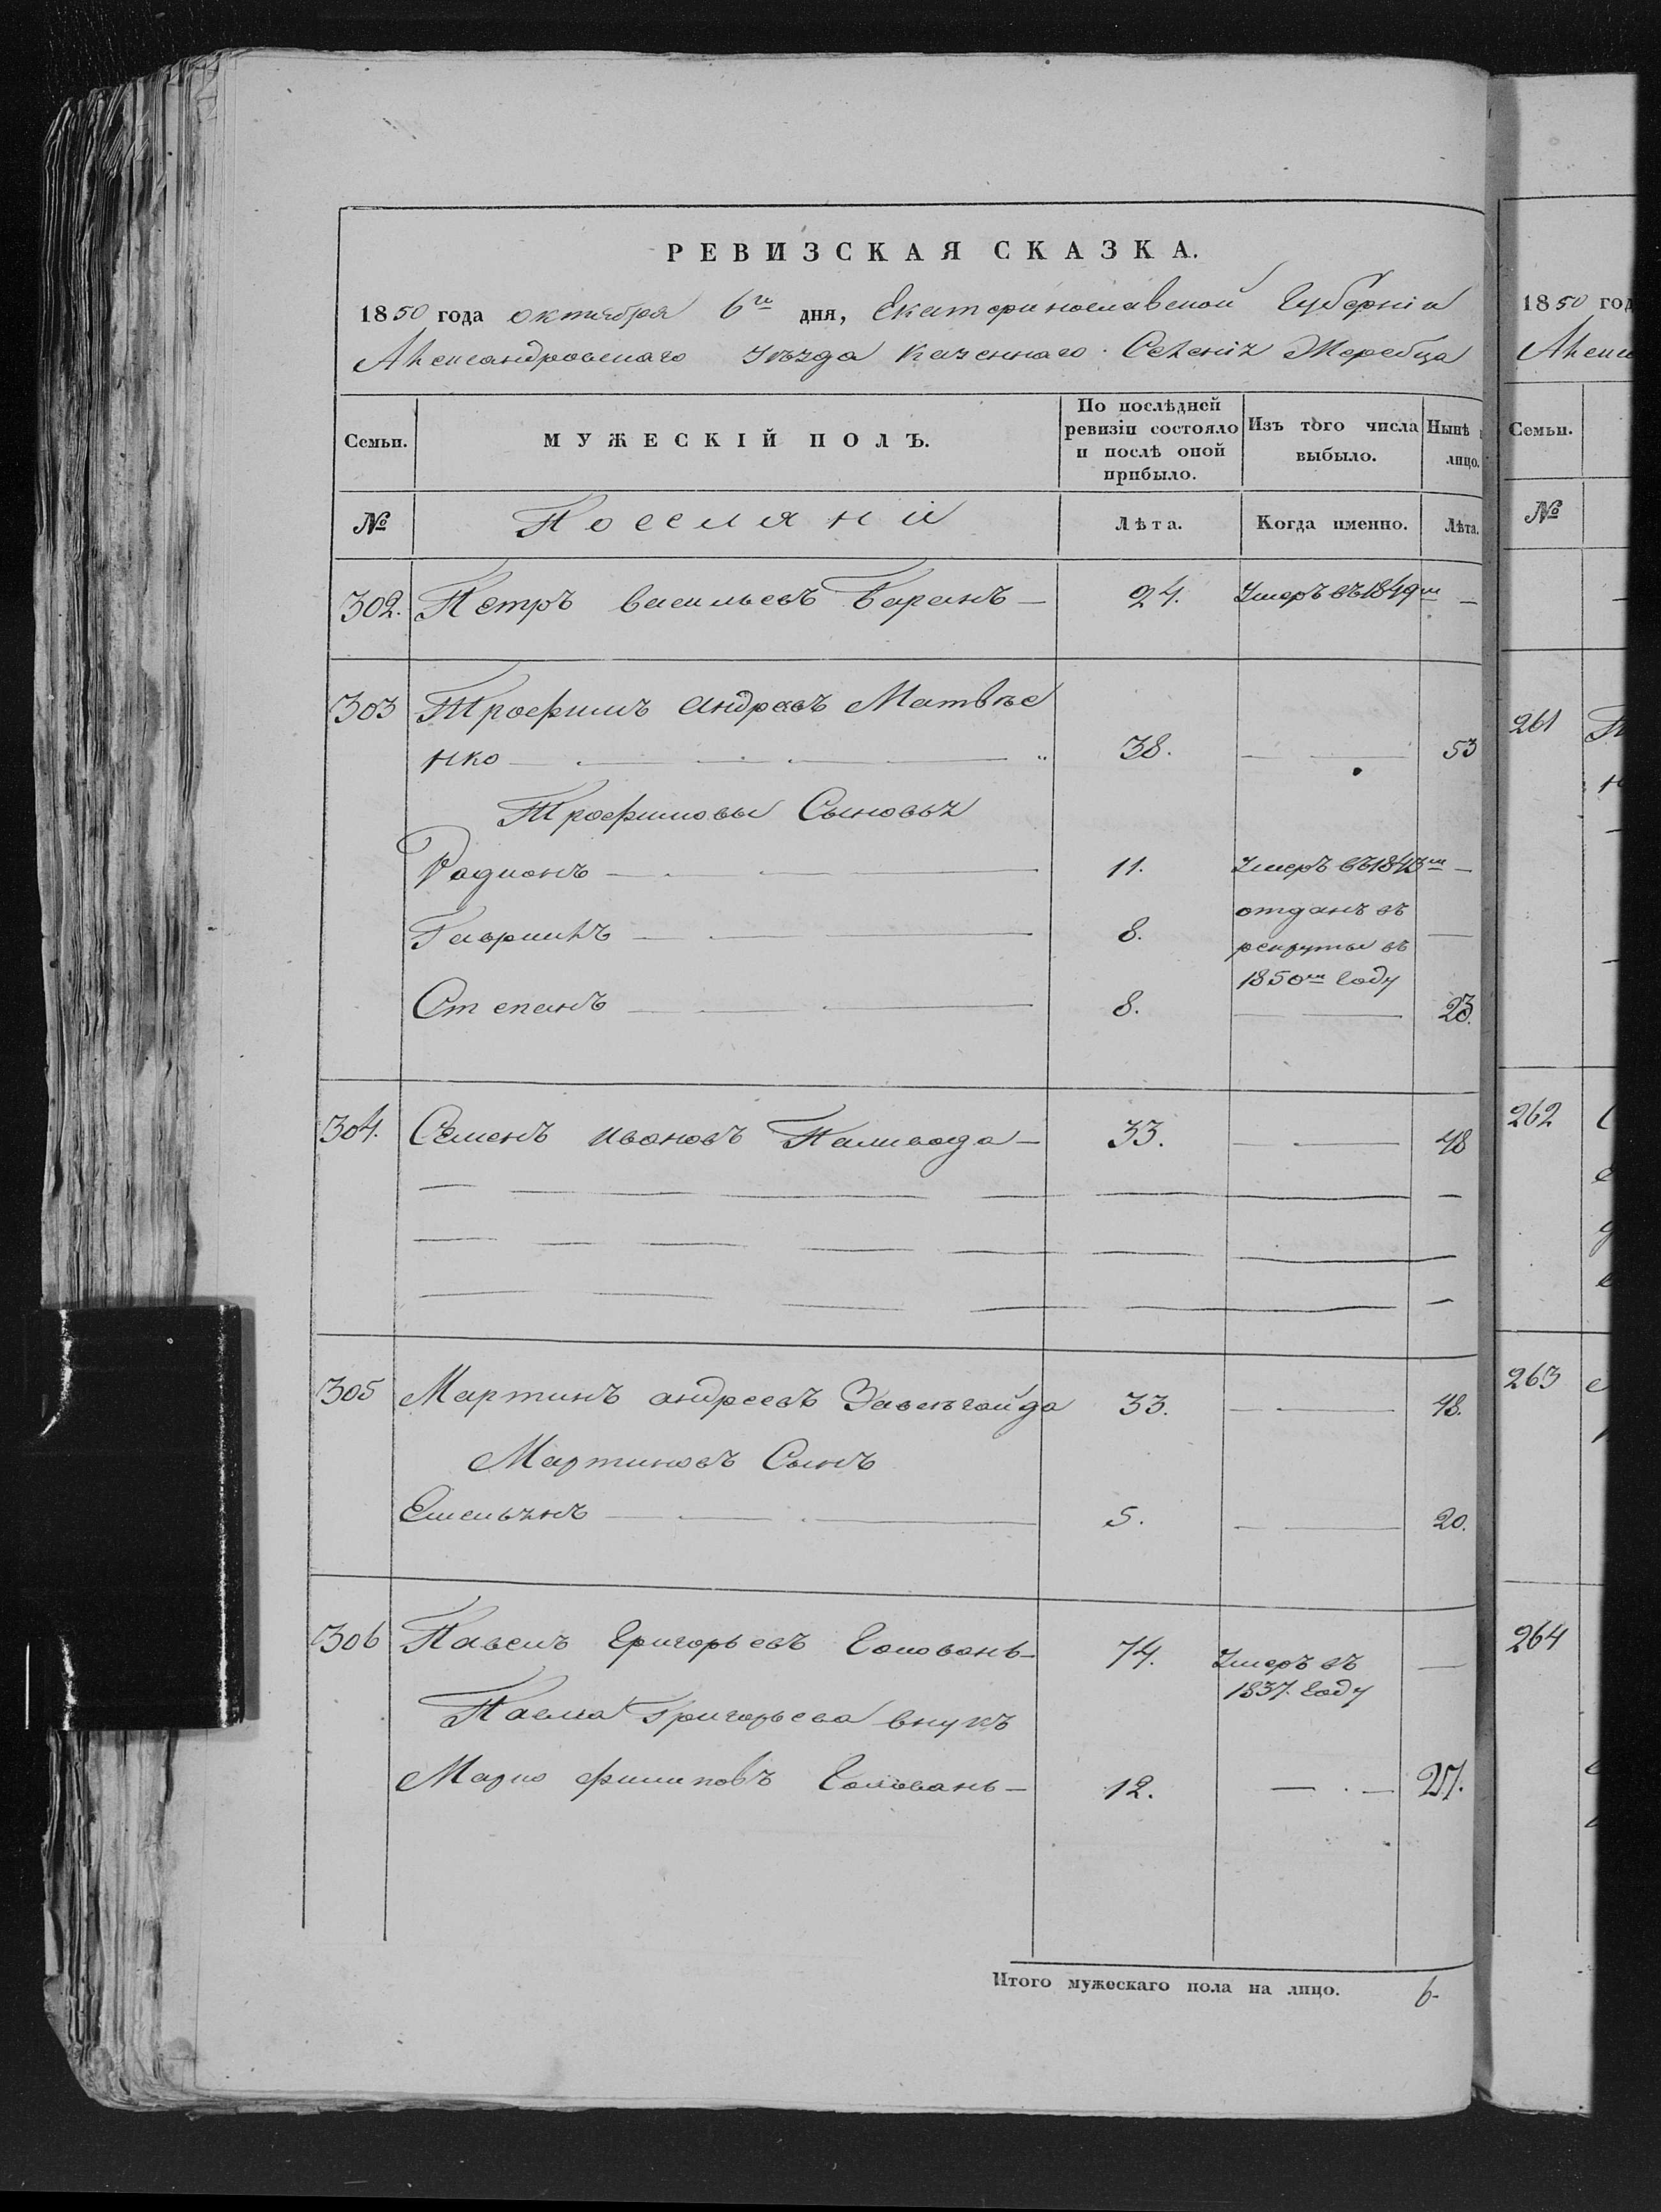 РЕВИЗСКАЯ СКАЗКА.
1850 года октября 6го дня, Екатеринославской Губерніи
Александровскаго уѣзда казеннаго Селенія Жеребца
Семьи. МУЖЕСКІЙ ПОЛЪ. По послѣдней ревизіи состояло и послѣ оной прибыло. Изъ того числа выбыло. Нынѣ лицо.
№ Поселяни Лѣта. Когда именно. Лѣта.
302. Петръ васильевъ Баранъ — 24. Умеръ въ 1849м —
303 Трофимъ андреевъ Матвѣе
нко — 38. — 53
Трофимовы Сыновья
Радионъ — 11. Умеръ въ 1843м —
Гавриилъ — 8. отданъ въ рекруты въ 1850м году —
Степанъ — 8. — 23.
304. Семенъ ивановъ Паливода — 33. — 48
305 Мартинъ андреевъ Завгайда 33. — 48.
Мартиновъ Сынъ
Емельянъ — 5. — 20.
306 Павелъ Григорьевъ Головань — 74. Умеръ въ 1837. году —
Павла Григорьева внукъ
Марко филиповъ Головань — 12. — 27.
Итого мужескаго пола на лицо. 6-
1850 год
Алекс
Семьи.
№
261
262
263
264